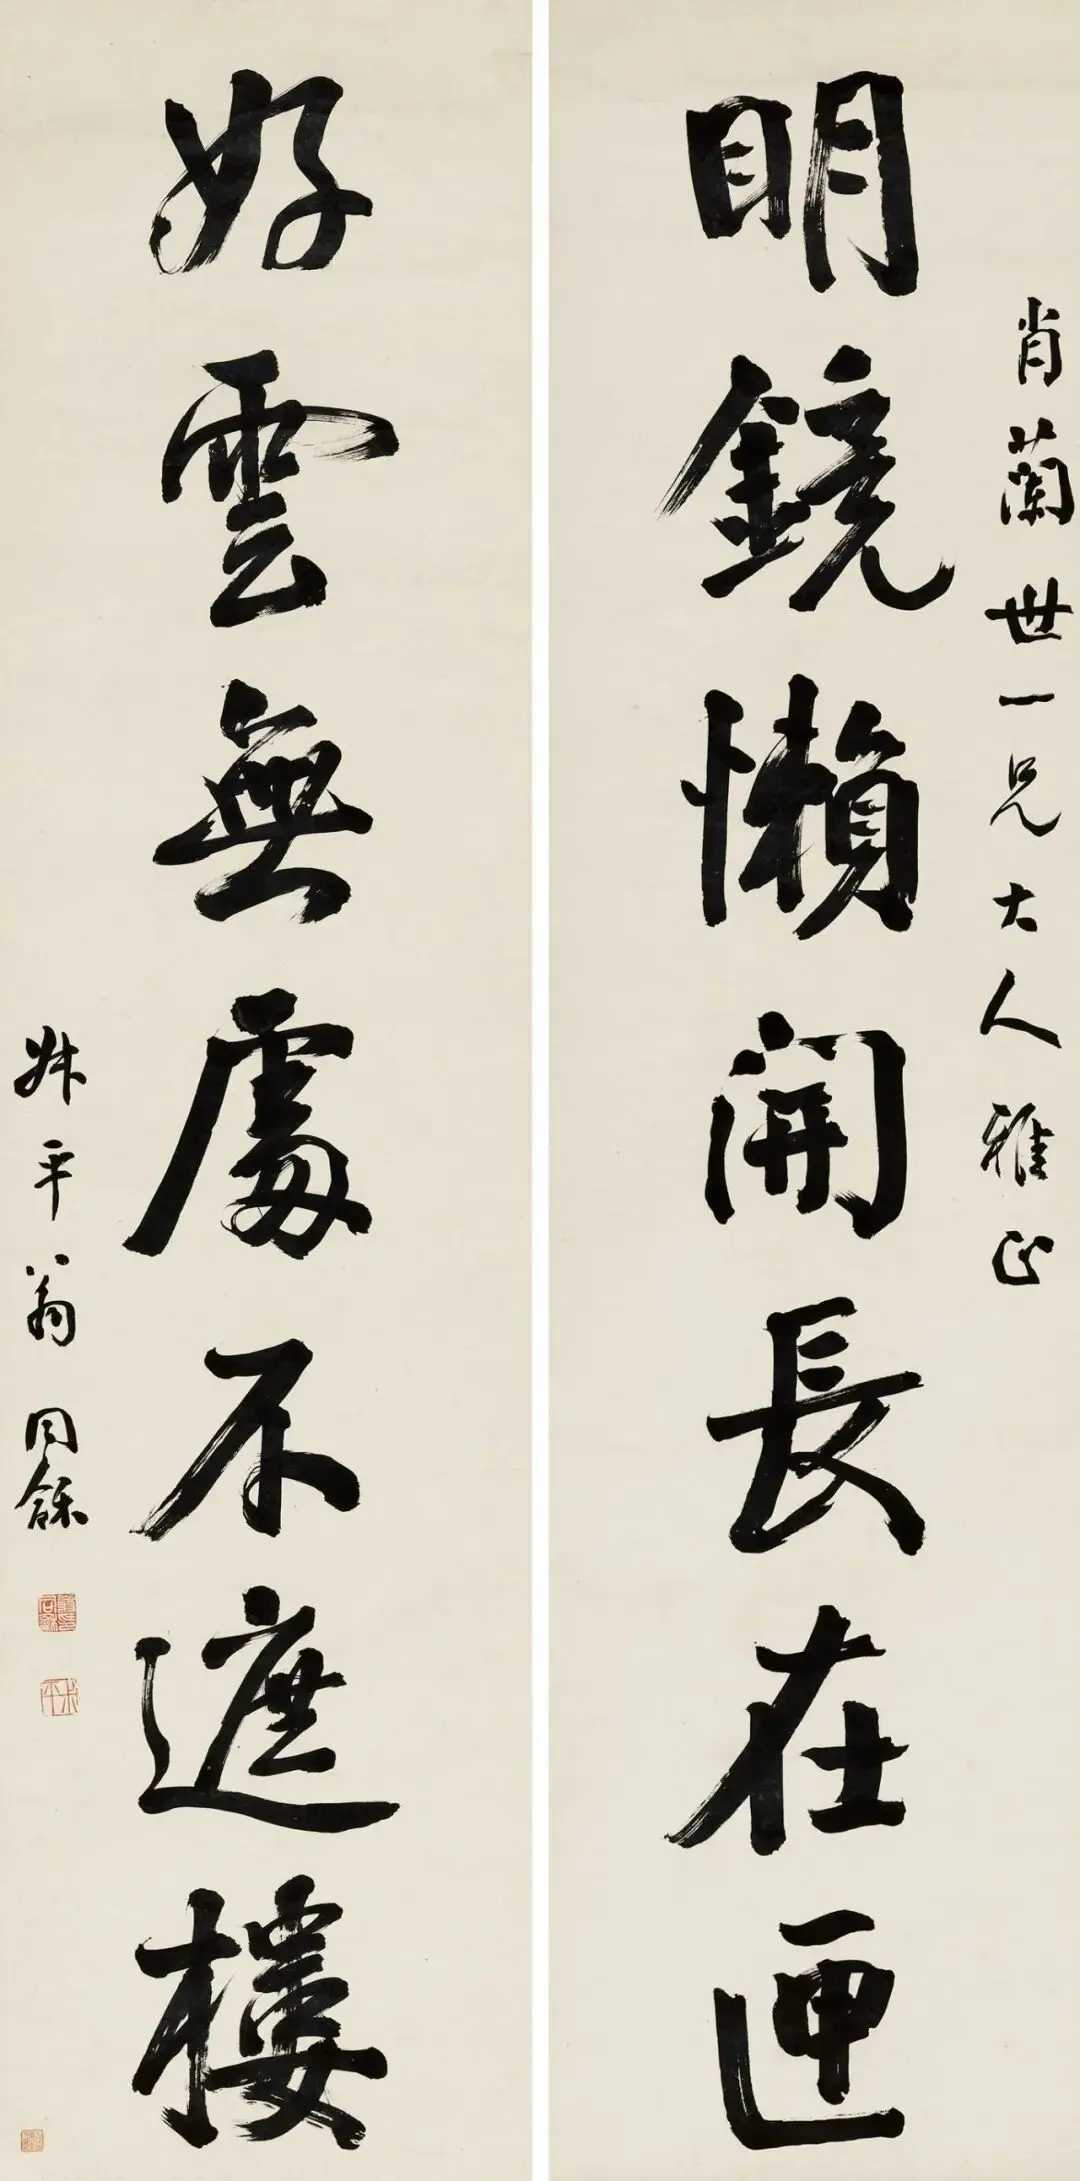 明鏡懶開長在匣
肖蘭世一兄大人雅正
好雲無處不遮樓
叔平翁同龢